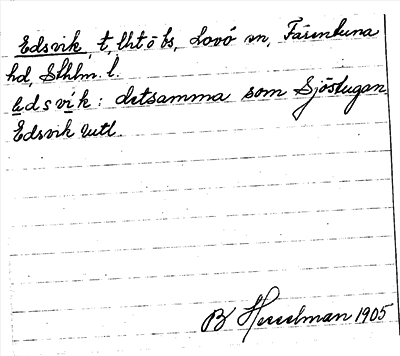 Edsvik, t, lhtöbs, Lovö sn, Färentuna
hd, Sthlm. l.
edsvik: detsamma som Sjöstugan
Edsvik utl.
B Hesselman 1905